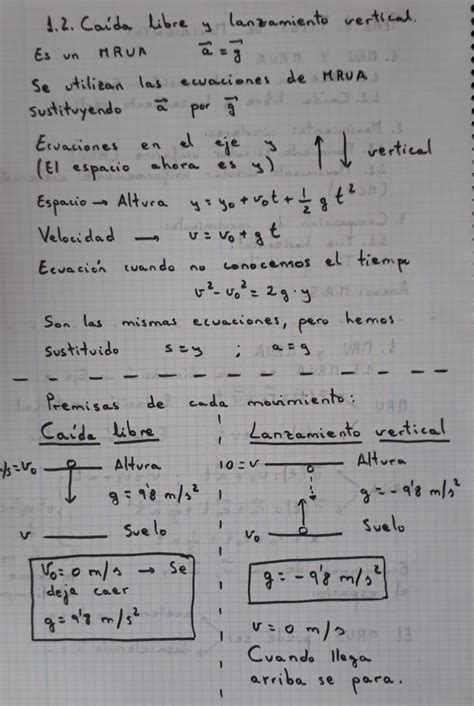 1.2. Caída libre y lanzamiento vertical.
Es un MRUA a⃗ = g⃗
Se utilizan las ecuaciones de MRUA
sustituyendo a⃗ por g⃗
Ecuaciones en el eje y
(El espacio ahora es y) vertical
Espacio → Altura y = y₀ + v₀t + 1/2 g t²
Velocidad → v = v₀ + g t
Ecuación cuando no conocemos el tiempo
v² - v₀² = 2g·y
Son las mismas ecuaciones, pero hemos
sustituido s = y ; a = g
Premisas de cada movimiento:
Caída libre
/s = v₀ Altura
g = 9'8 m/s²
v Suelo
V₀ = 0 m/s → Se
deja caer
g = 9'8 m/s²
Lanzamiento vertical
10 = v Altura
g = - 9'8 m/s²
v₀ Suelo
g = - 9'8 m/s²
v = 0 m/s
Cuando llega
arriba se para.